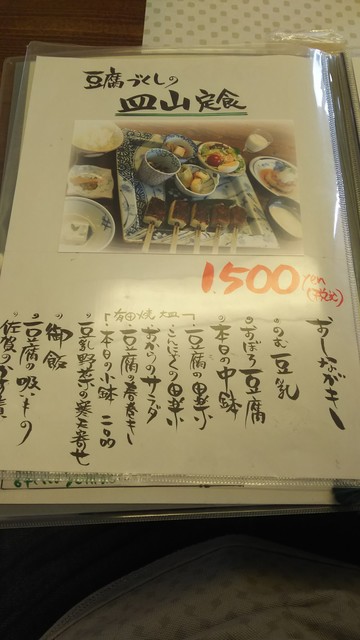 豆腐づくしの
皿山定食
1.500 yen
(税込)
おしながき
のむ豆乳
おぼろ豆腐
本日の中鉢
有田焼大皿
豆腐の田楽
こんにゃくの田楽
おからのサラダ
豆腐の春巻き
本日の小鉢 二品
豆乳野菜の寒天寄せ
御飯
豆腐の吸いもの